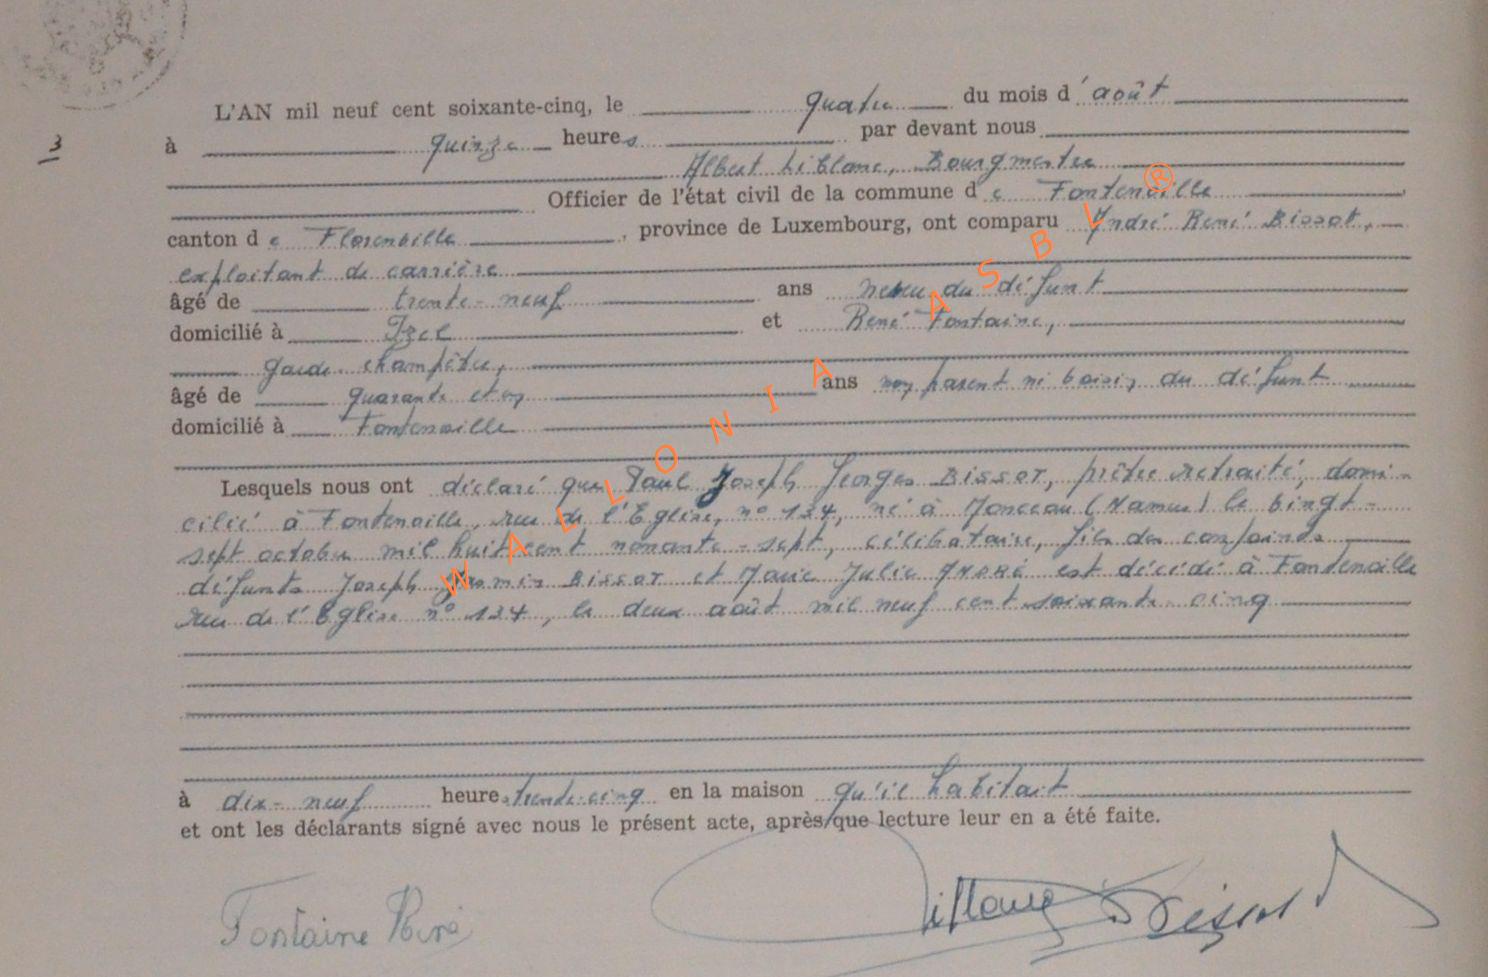 L'AN mil neuf cent soixante-cinq, le quatre du mois d'août
3
à quinze heures par devant nous
Albert Liblanc, Bourgmestre
Officier de l'état civil de la commune de Fontenoille
canton de Florenville, province de Luxembourg, ont comparu André René Bissot,
exploitant de carrière
âgé de trente-neuf ans neveu du défunt
domicilié à Izel et René Fontaine,
garde champêtre,
âgé de quarante et un ans non parent ni voisin du défunt
domicilié à Fontenoille
Lesquels nous ont déclaré que Paul Joseph Georges BISSOT, prêtre retraité, domi-
cilié à Fontenoille, rue de l'Eglise, n° 134, né à Monceau (Namur) le vingt-
sept octobre mil huit cent nonante-sept, célibataire, fils des conjoints
défunts Joseph Firmin BISSOT et Marie Julie ANDRÉ est décédé à Fontenoille
rue de l'Eglise n° 134, le deux août mil neuf cent soixante-cinq
à dix-neuf heures trente-cinq en la maison qu'il habitait
et ont les déclarants signé avec nous le présent acte, après que lecture leur en a été faite.
Fontaine René
WALLONIA ASBL ®